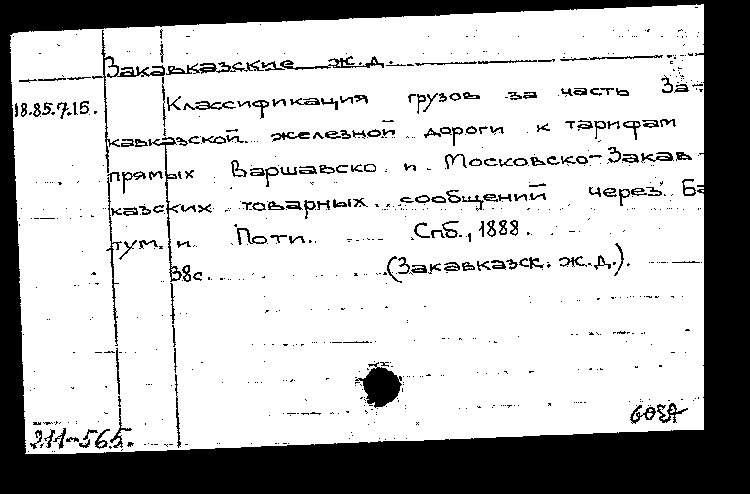 Закавказские ж.д.
18.85.7.15. Классификация грузов за часть За-
кавказской железной дороги к тарифам
прямых Варшавско и Московско-Закав-
казских товарных сообщений через Ба
тум и Поти. Спб., 1888.
38с. (Закавказск. ж.д.).
211-565.